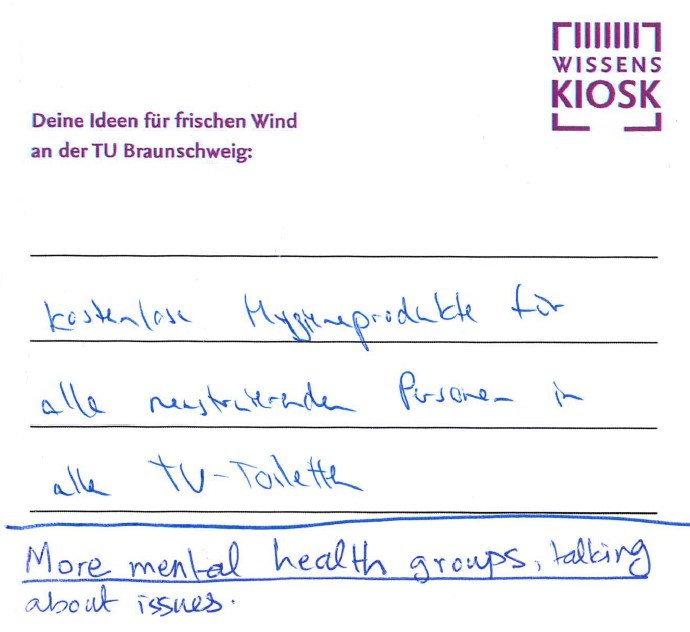 WISSENS
KIOSK
Deine Ideen für frischen Wind
an der TU Braunschweig:
kostenlose Hygieneprodukte für
alle menstruierenden Personen in
allen TU-Toiletten
More mental health groups, talking
about issues.